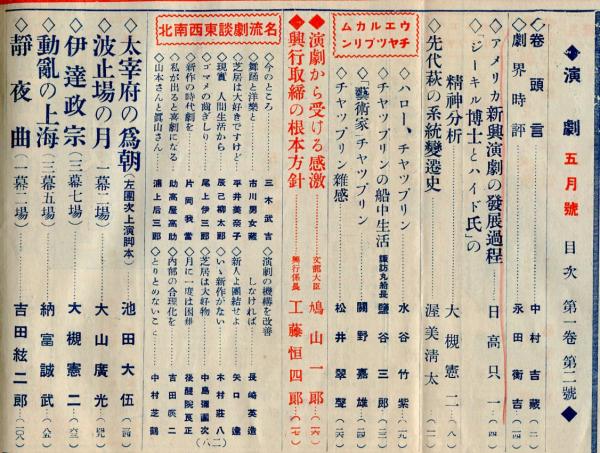 ◆演劇 五月號 目次 第一卷 第二號◆
◇卷頭言 中村吉藏…(一)
◇劇界時評 永田衡吉…(二)
◇アメリカ新興演劇の發展過程 日高只一…(四)
◇「ジーキル博士とハイド氏」の精神分析 大槻憲二…(八)
◇先代萩の系統變遷史 渥美淸太…(二一)
ウエルカム チヤツプリン
◇ハロー、チヤツプリン 水谷竹紫…(二九)
◇チヤツプリンの船中生活 諏訪丸給長 鹽谷三郎…(三二)
◇「藝術家」チヤツプリン 關野嘉雄…(三四)
◇チヤツプリン雜感 松井翠聲…(三六)
◆演劇から受ける感激 文部大臣 鳩山一郞…(一六)
◆興行取締の根本方針 興行係長 工藤恒四郞…(一七)
名流劇談東西南北
◇今のところ 三木武吉
◇舞踊と洋樂と 市川男女藏
◇芝居は大好きですけど 平井美奈子
◇現實 人間生活から 辰己柳太郞
◇ゴマメの齒ぎしり 尾上伊三郞
◇新作の時代劇を 片岡我當
◇私が出ると喜劇になる 助高屋高助
◇山本さんと眞山さん 浦上后三郞
◇演劇の機構を改善しなければ 長崎英造
◇新人よ團結せよ 矢口達
◇いゝ新作がない 木村莊八
◇芝居は大好物 中島彌團次
◇月に一度は因緣 後醍院眞正
◇內部の合理化を 吉田暎二
◇とりとめないこと 中村芝鶴
(八二)
◇太宰府の爲朝(左團次上演脚本) 池田大伍…(四)
◇波止場の月(一幕二場) 大山廣光…(四九)
◇伊達政宗(三幕七場) 大槻憲二…(六三)
◇動亂の上海(三幕五場) 納富誠武…(八五)
◇靜夜曲(一幕二場) 吉田絃二郞…(一〇五)